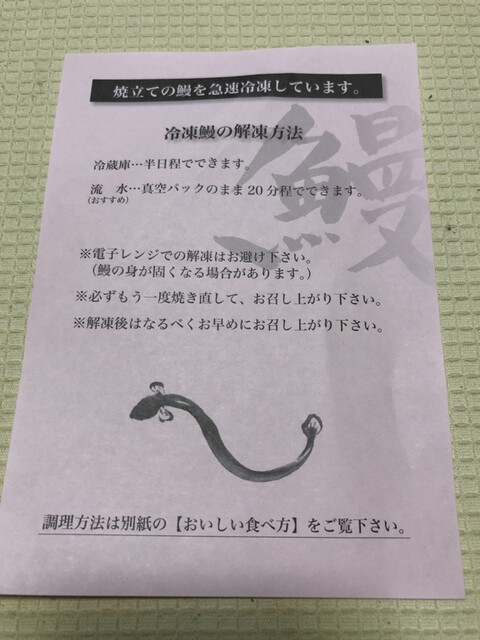 焼立ての鰻を急速冷凍しています。
鰻
冷凍鰻の解凍方法
冷蔵庫…半日程でできます。
流　水…真空パックのまま20分程でできます。
(おすすめ)
※電子レンジでの解凍はお避け下さい。
（鰻の身が固くなる場合があります。）
※必ずもう一度焼き直して、お召し上がり下さい。
※解凍後はなるべくお早めにお召し上がり下さい。
調理方法は別紙の【おいしい食べ方】をご覧下さい。